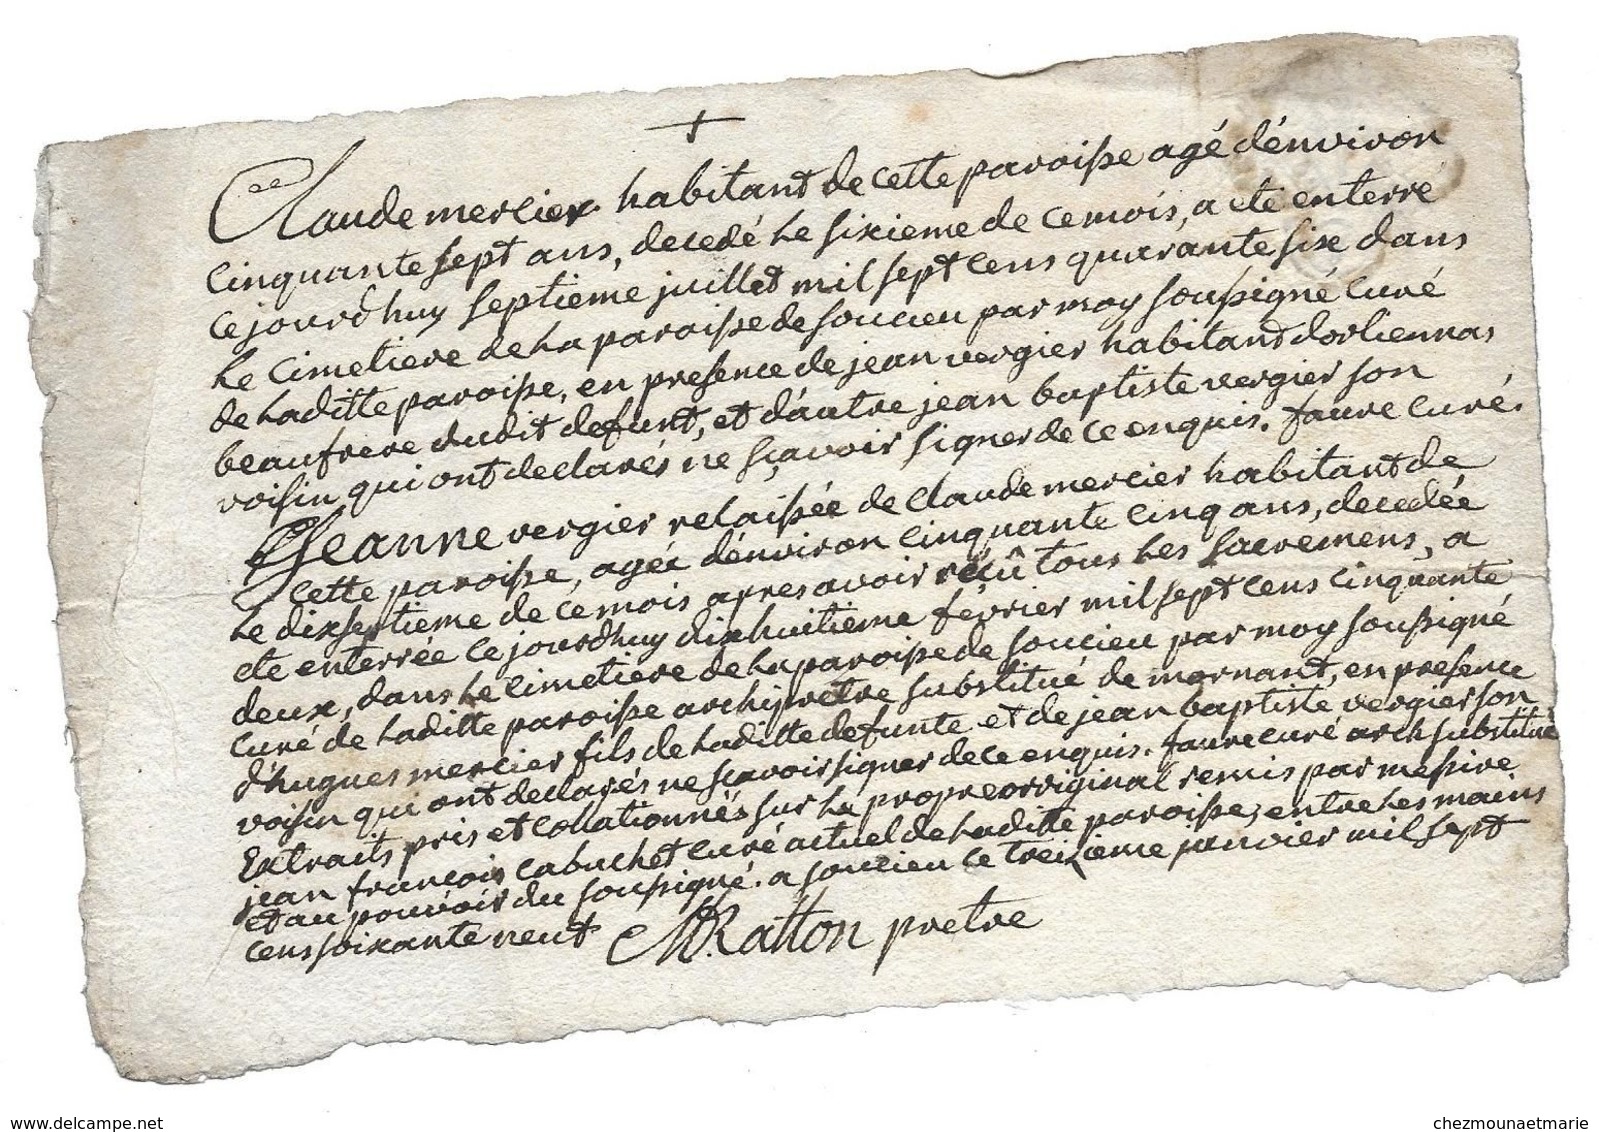 +
Claude mercier habitant de cette paroisse agé d'énviron
cinquante sept ans, decedé le sixieme de ce mois, a eté enterré
ce jourd'huy septieme juillet mil sept cens quarante six dans
le cimetiere de la paroisse de soucieu par moy soussigné curé
de laditte paroisse, en presence de jean vergier habitant dorliennas
beaufrere dudit defunt, et d'autre jean baptiste vergier son
voisin qui ont declarés ne sçavoir signer de ce enquis. faure curé.
Jeanne vergier relaissée de claude mercier habitant de
cette paroisse, agée d'énviron cinquante cinq ans, decedée
le dixseptieme de ce mois apres avoir réçû tous les sacremens, a
ete enterrée ce jourdhuy dixhuitieme février mil sept cens cinquante
deux, dans le cimetiere de la paroisse de soucieu par moy soussigné
curé de laditte paroisse archiprêtre substitué de mornant, en presence
d'hugues mercier fils de laditte defunte et de jean baptiste vergier son
voisin qui ont declarés ne sçavoir signer de ce enquis. faure curé arch substitué
Extraits pris et collationnés sur le propre orriginal remis par messire
jean françois cabuchet curé actuel de laditte paroisse, entre les mains
et au pouvoir du soussigné. a soucieu ce treizieme janvier mil sept
cens soixante neuf Ratton pretre
chezmounaetmarie